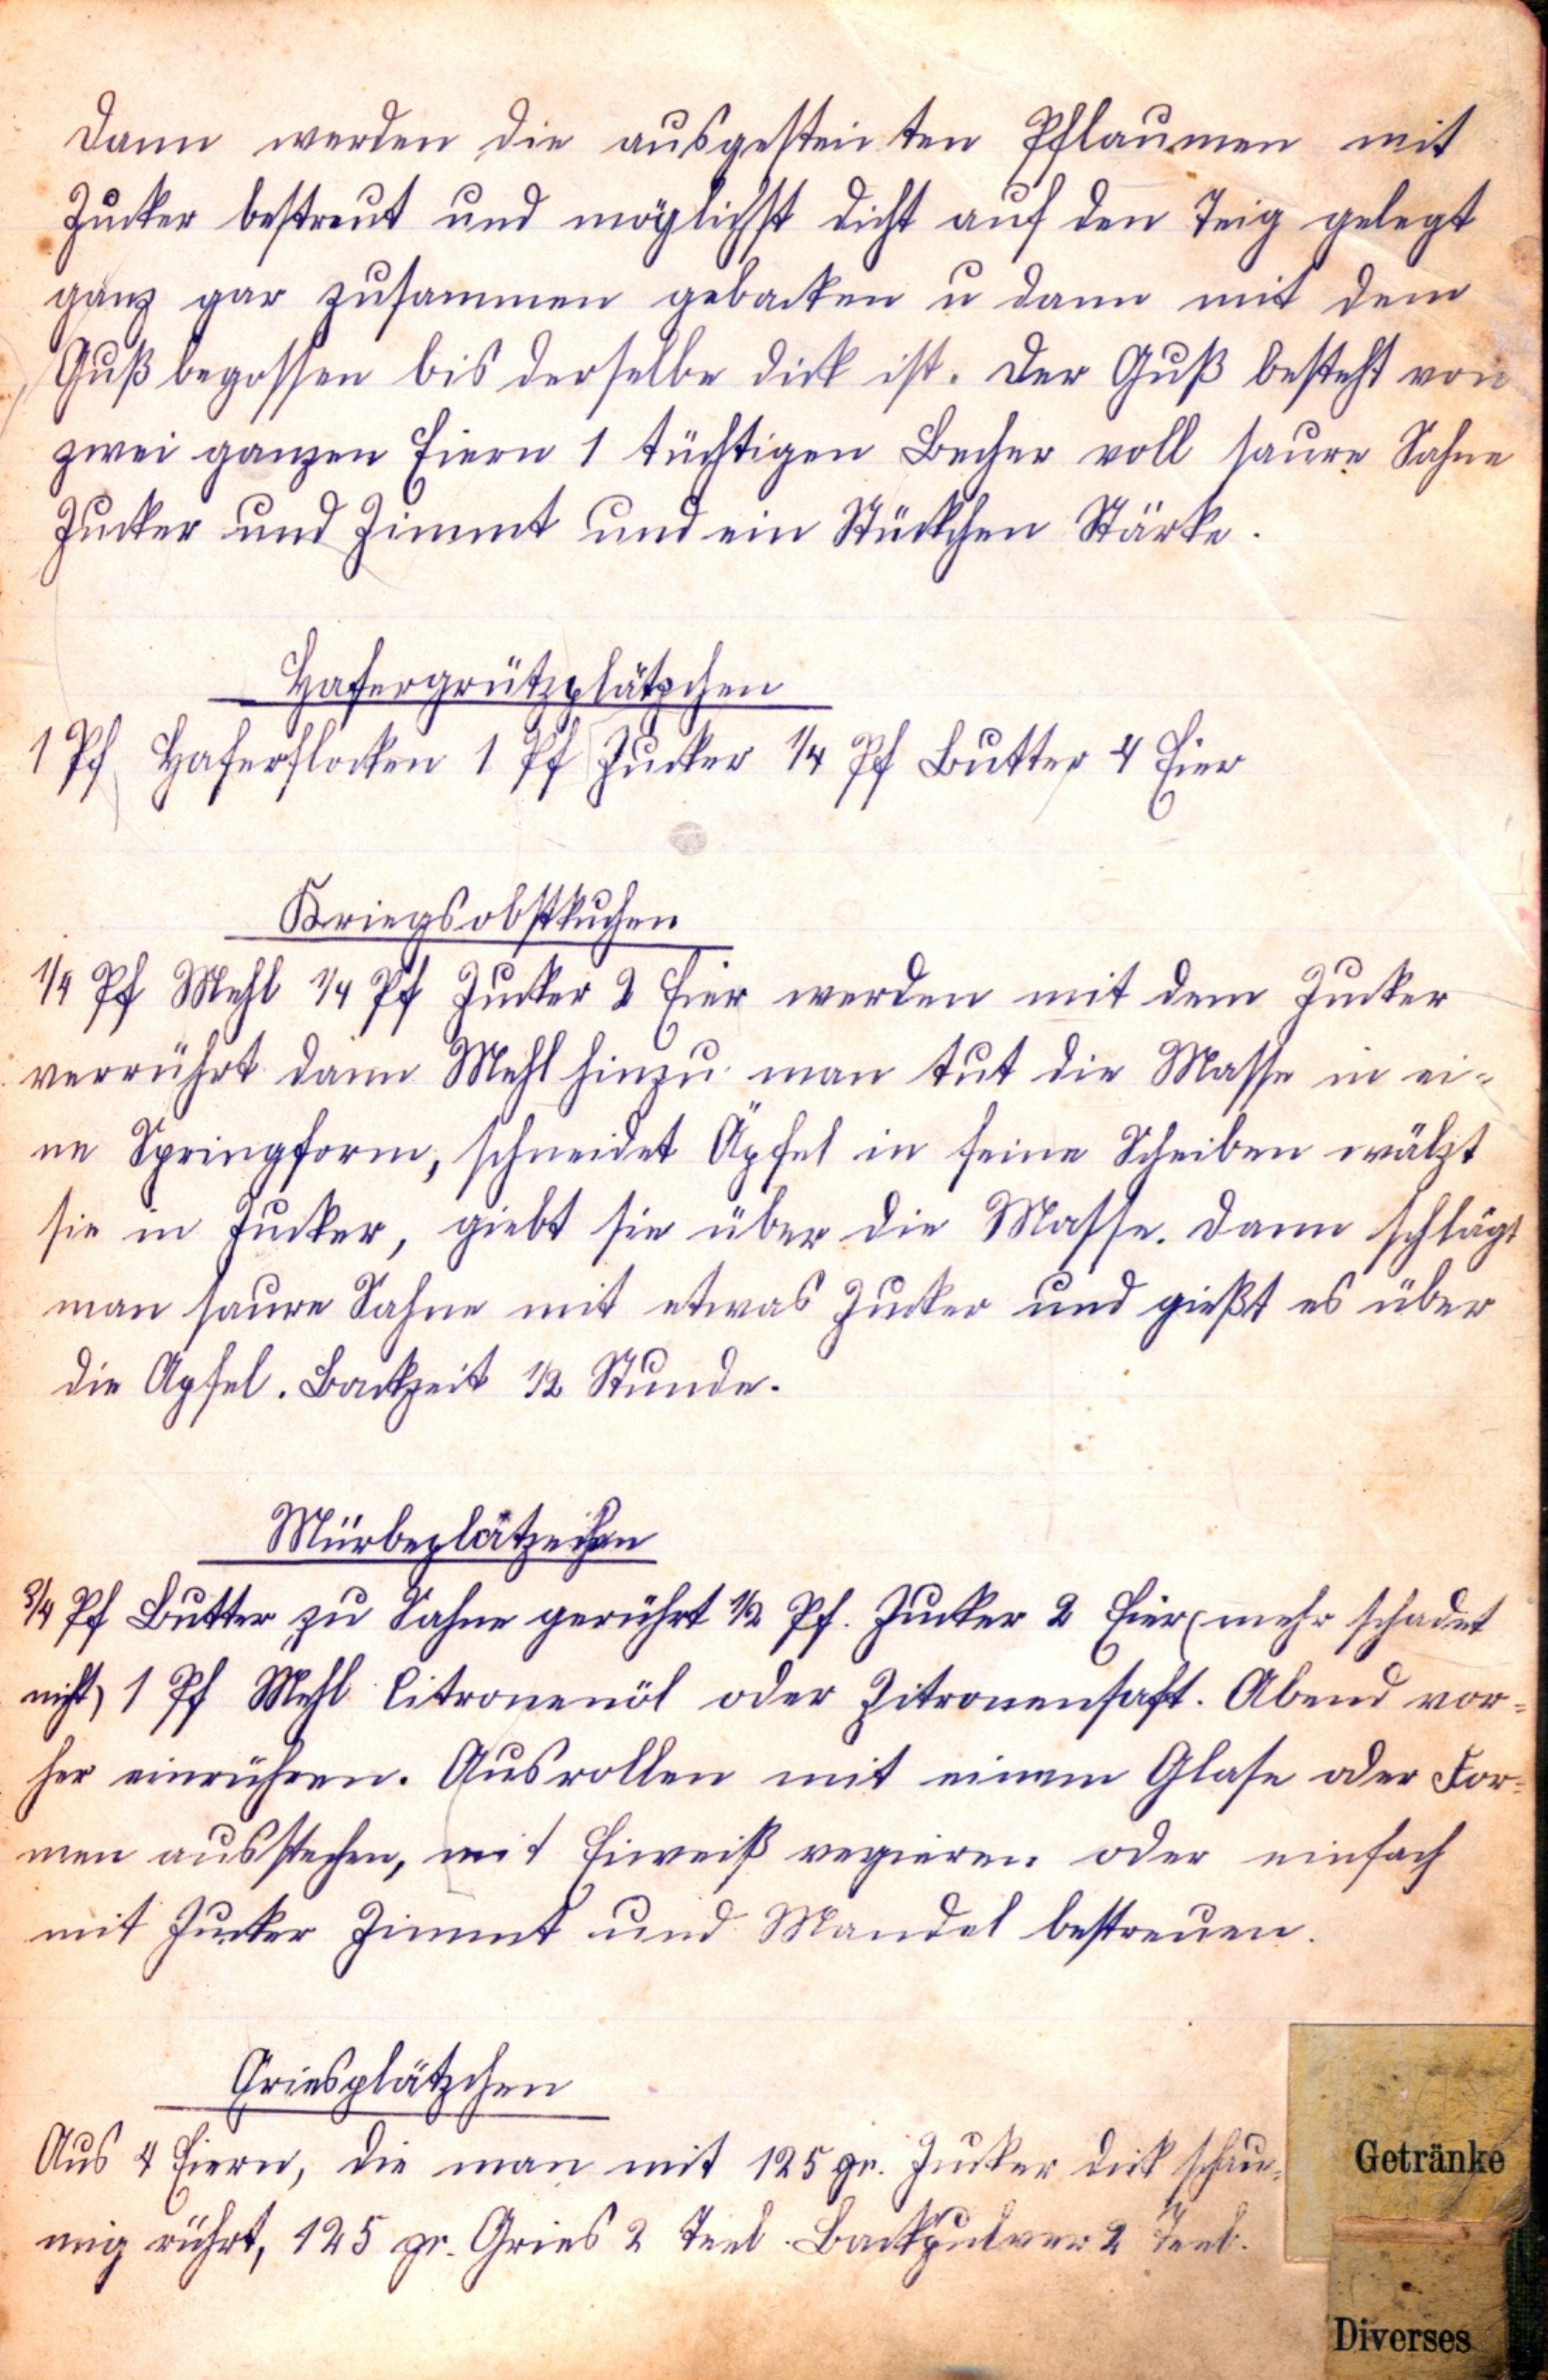 Dann werden die ausgesteinten Pflaumen mit
Zucker bestreut und möglichst dicht auf den Teig gelegt
ganz gar zusammen gebacken u dann mit dem
Guß begossen bis derselbe dick ist. Der Guß besteht von
zwei ganzen Eiern 1 tüchtigen Becher voll saure Sahne
Zucker und Zimmt und ein Stückchen Stärke.
Hafergrützplätzchen
1 Pf Haferflocken 1 Pf Zucker 1/4 Pf Butter 4 Eier
Kriegsobstkuchen
1/4 Pf Mehl 1/4 Pf Zucker 2 Eier werden mit dem Zucker
verrührt dann Mehl hinzu man tut die Masse in ei-
ne Springform, schneidet Äpfel in feine Scheiben wälzt
sie in Zucker, giebt sie über die Masse. Dann schlägt
man saure Sahne mit etwas Zucker und gießt es über
die Apfel. Backzeit 1/2 Stunde.
Mürbeplätzchen
3/4 Pf Butter zu Sahne gerührt 1/2 Pf. Zucker 2 Eier (mehr schadet
nicht) 1 Pf Mehl Citronenöl oder Zitronensaft. Abend vor-
her einrühren. Ausrollen mit einem Glase oder For-
men ausstechen, mit Eiweiß verzieren oder einfach
mit Zucker Zimmt und Mandel bestreuen.
Griesplätzchen
Aus 4 Eiern, die man mit 125 gr. Zucker dick schau-
mig rührt, 125 gr. Gries 2 Teel. Backpulver 2 Teel.
Getränke
Diverses